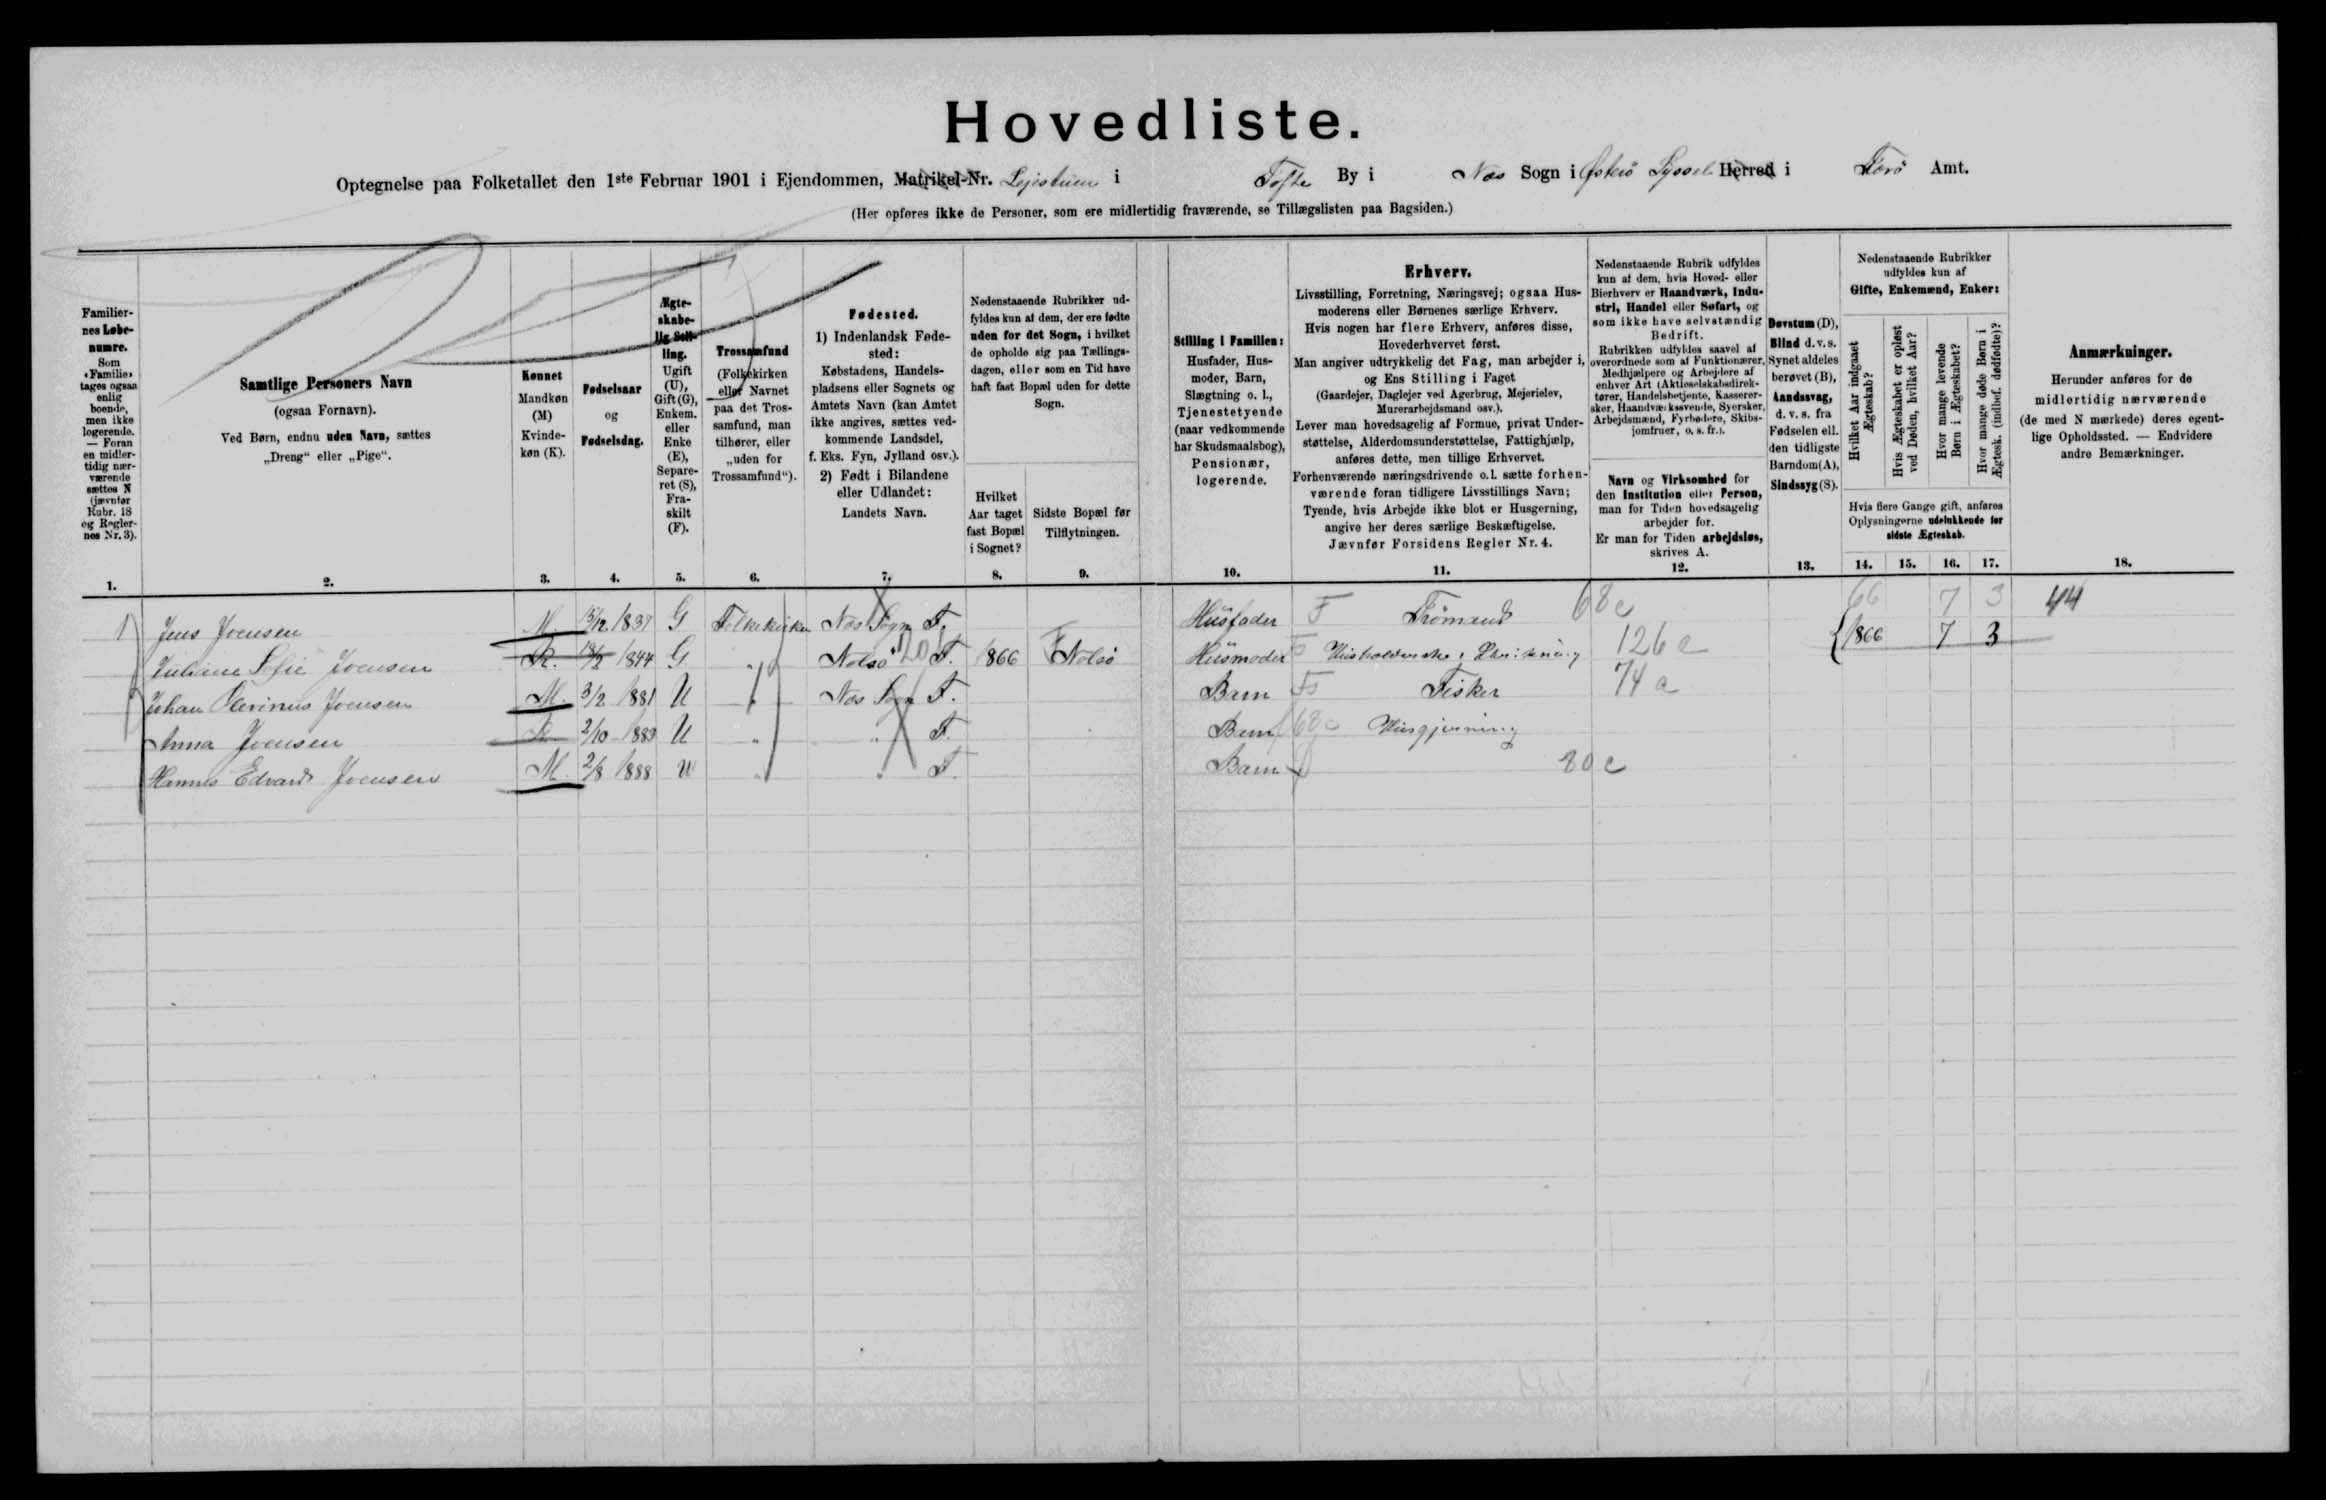 Hovedliste.
Optegnelse paa Folketallet den 1ste Februar 1901 i Ejendommen, Matrikel-Nr. i Tofte By i Næs Sogn i Østerö Syssel Herred i Færö Amt.
(Her opføres ikke de Personer, som ere midlertidig fraværende, se Tillægslisten paa Bagsiden.)
Familier-
nes Løbe-
numre.
Som
«Familie»
tages ogsaa
enlig
boende,
men ikke
logerende.
— Foran
en midler-
tidig nær-
værende
sættes N
(jævnfør
Rubr. 18
og Regler-
nes Nr. 3).
1.
Samtlige Personers Navn
(ogsaa Fornavn).
Ved Børn, endnu uden Navn, sættes
„Dreng“ eller „Pige“.
2.
Kønnet
Mandkøn
(M)
Kvinde-
køn (K).
3.
Fødselsaar
og
Fødselsdag.
4.
Ægte-
skabe-
lig Stil-
ling.
Ugift
(U),
Gift (G),
Enkem.
eller
Enke
(E),
Separe-
ret (S),
Fra-
skilt
(F).
5.
Trossamfund
(Folkekirken
eller Navnet
paa det Tros-
samfund, man
tilhører, eller
„uden for
Trossamfund“).
6.
Fødested.
1) Indenlandsk Føde-
sted:
Købstadens, Handels-
pladsens eller Sognets og
Amtets Navn (kan Amtet
ikke angives, sættes ved-
kommende Landsdel,
f. Eks. Fyn, Jylland osv.).
2) Født i Bilandene
eller Udlandet:
Landets Navn.
7.
Nedenstaaende Rubrikker ud-
fyldes kun af dem, der ere fødte
uden for det Sogn, i hvilket
de opholde sig paa Tællings-
dagen, eller som en Tid have
haft fast Bopæl uden for dette
Sogn.
Hvilket
Aar taget
fast Bopæl
i Sognet?
8.
Sidste Bopæl før
Tilflytningen.
9.
Stilling i Familien:
Husfader, Hus-
moder, Barn,
Slægtning o. l.,
Tjenestetyende
(naar vedkommende
har Skudsmaalsbog),
Pensionær,
logerende.
10.
Erhverv.
Livsstilling, Forretning, Næringsvej; ogsaa Hus-
moderens eller Børnenes særlige Erhverv.
Hvis nogen har flere Erhverv, anføres disse,
Hovederhvervet først.
Man angiver udtrykkelig det Fag, man arbejder i,
og Ens Stilling i Faget
(Gaardejer, Daglejer ved Agerbrug, Mejerielev,
Murerarbejdsmand osv.).
Lever man hovedsagelig af Formue, privat Under-
støttelse, Alderdomsunderstøttelse, Fattighjælp,
anføres dette, men tillige Erhvervet.
Forhenværende næringsdrivende o. l. sætte forhen-
værende foran tidligere Livsstillings Navn;
Tyende, hvis Arbejde ikke blot er Husgerning,
angive her deres særlige Beskæftigelse.
Jævnfør Forsidens Regler Nr. 4.
11.
Nedenstaaende Rubrik udfyldes
kun af dem, hvis Hoved- eller
Bierhverv er Haandværk, Indu-
stri, Handel eller Søfart, og
som ikke have selvstændig
Bedrift.
Rubrikken udfyldes saavel af
overordnede som af Funktionærer,
Medhjælpere og Arbejdere af
enhver Art (Aktieselskabsdirek-
tører, Handelsbetjente, Kasserer-
sker, Haandværkssvende, Syersker,
Arbejdsmænd, Fyrbødere, Skibs-
jomfruer, o. s. fr.).
Navn og Virksomhed for
den Institution eller Person,
man for Tiden hovedsagelig
arbejder for.
Er man for Tiden arbejdsløs,
skrives A.
12.
Døvstum (D),
Blind d. v. s.
Synet aldeles
berøvet (B),
Aandssvag,
d. v. s. fra
Fødselen ell.
den tidligste
Barndom (A),
Sindssyg (S).
13.
Nedenstaaende Rubrikker
udfyldes kun af
Gifte, Enkemænd, Enker:
Hvilket Aar indgaaet
Ægteskab?
Hvis Ægteskabet er opløst
ved Døden, hvilket Aar?
Hvor mange levende
Børn i Ægteskabet?
Hvor mange døde Børn i
Ægtesk. (indbef. dødfødte)?
Hvis flere Gange gift, anføres
Oplysningerne udelukkende for
sidste Ægteskab.
14. 15. 16. 17.
Anmærkninger.
Herunder anføres for de
midlertidig nærværende
(de med N mærkede) deres egent-
lige Opholdssted. — Endvidere
andre Bemærkninger.
18.
1 Jens Joensen M. 15/12 1837 G Folkekirken Næs Sogn F. Husfader F 68c 66 7 3 44
Juliane Sofie Joensen K. 1844 G. " Nolsö F. 1866 Nolsö Husmoder 126 c 1866 7 3
Johan Joensen M. 3/2 1881 U " Næs Sogn F. Barn Fisker 74 a
Anna Joensen K 2/10 1883 U " " F. Barn Husgjerning
Hannes Edvard Joensen M. 2/8 1888 U " " F. Barn 80 c